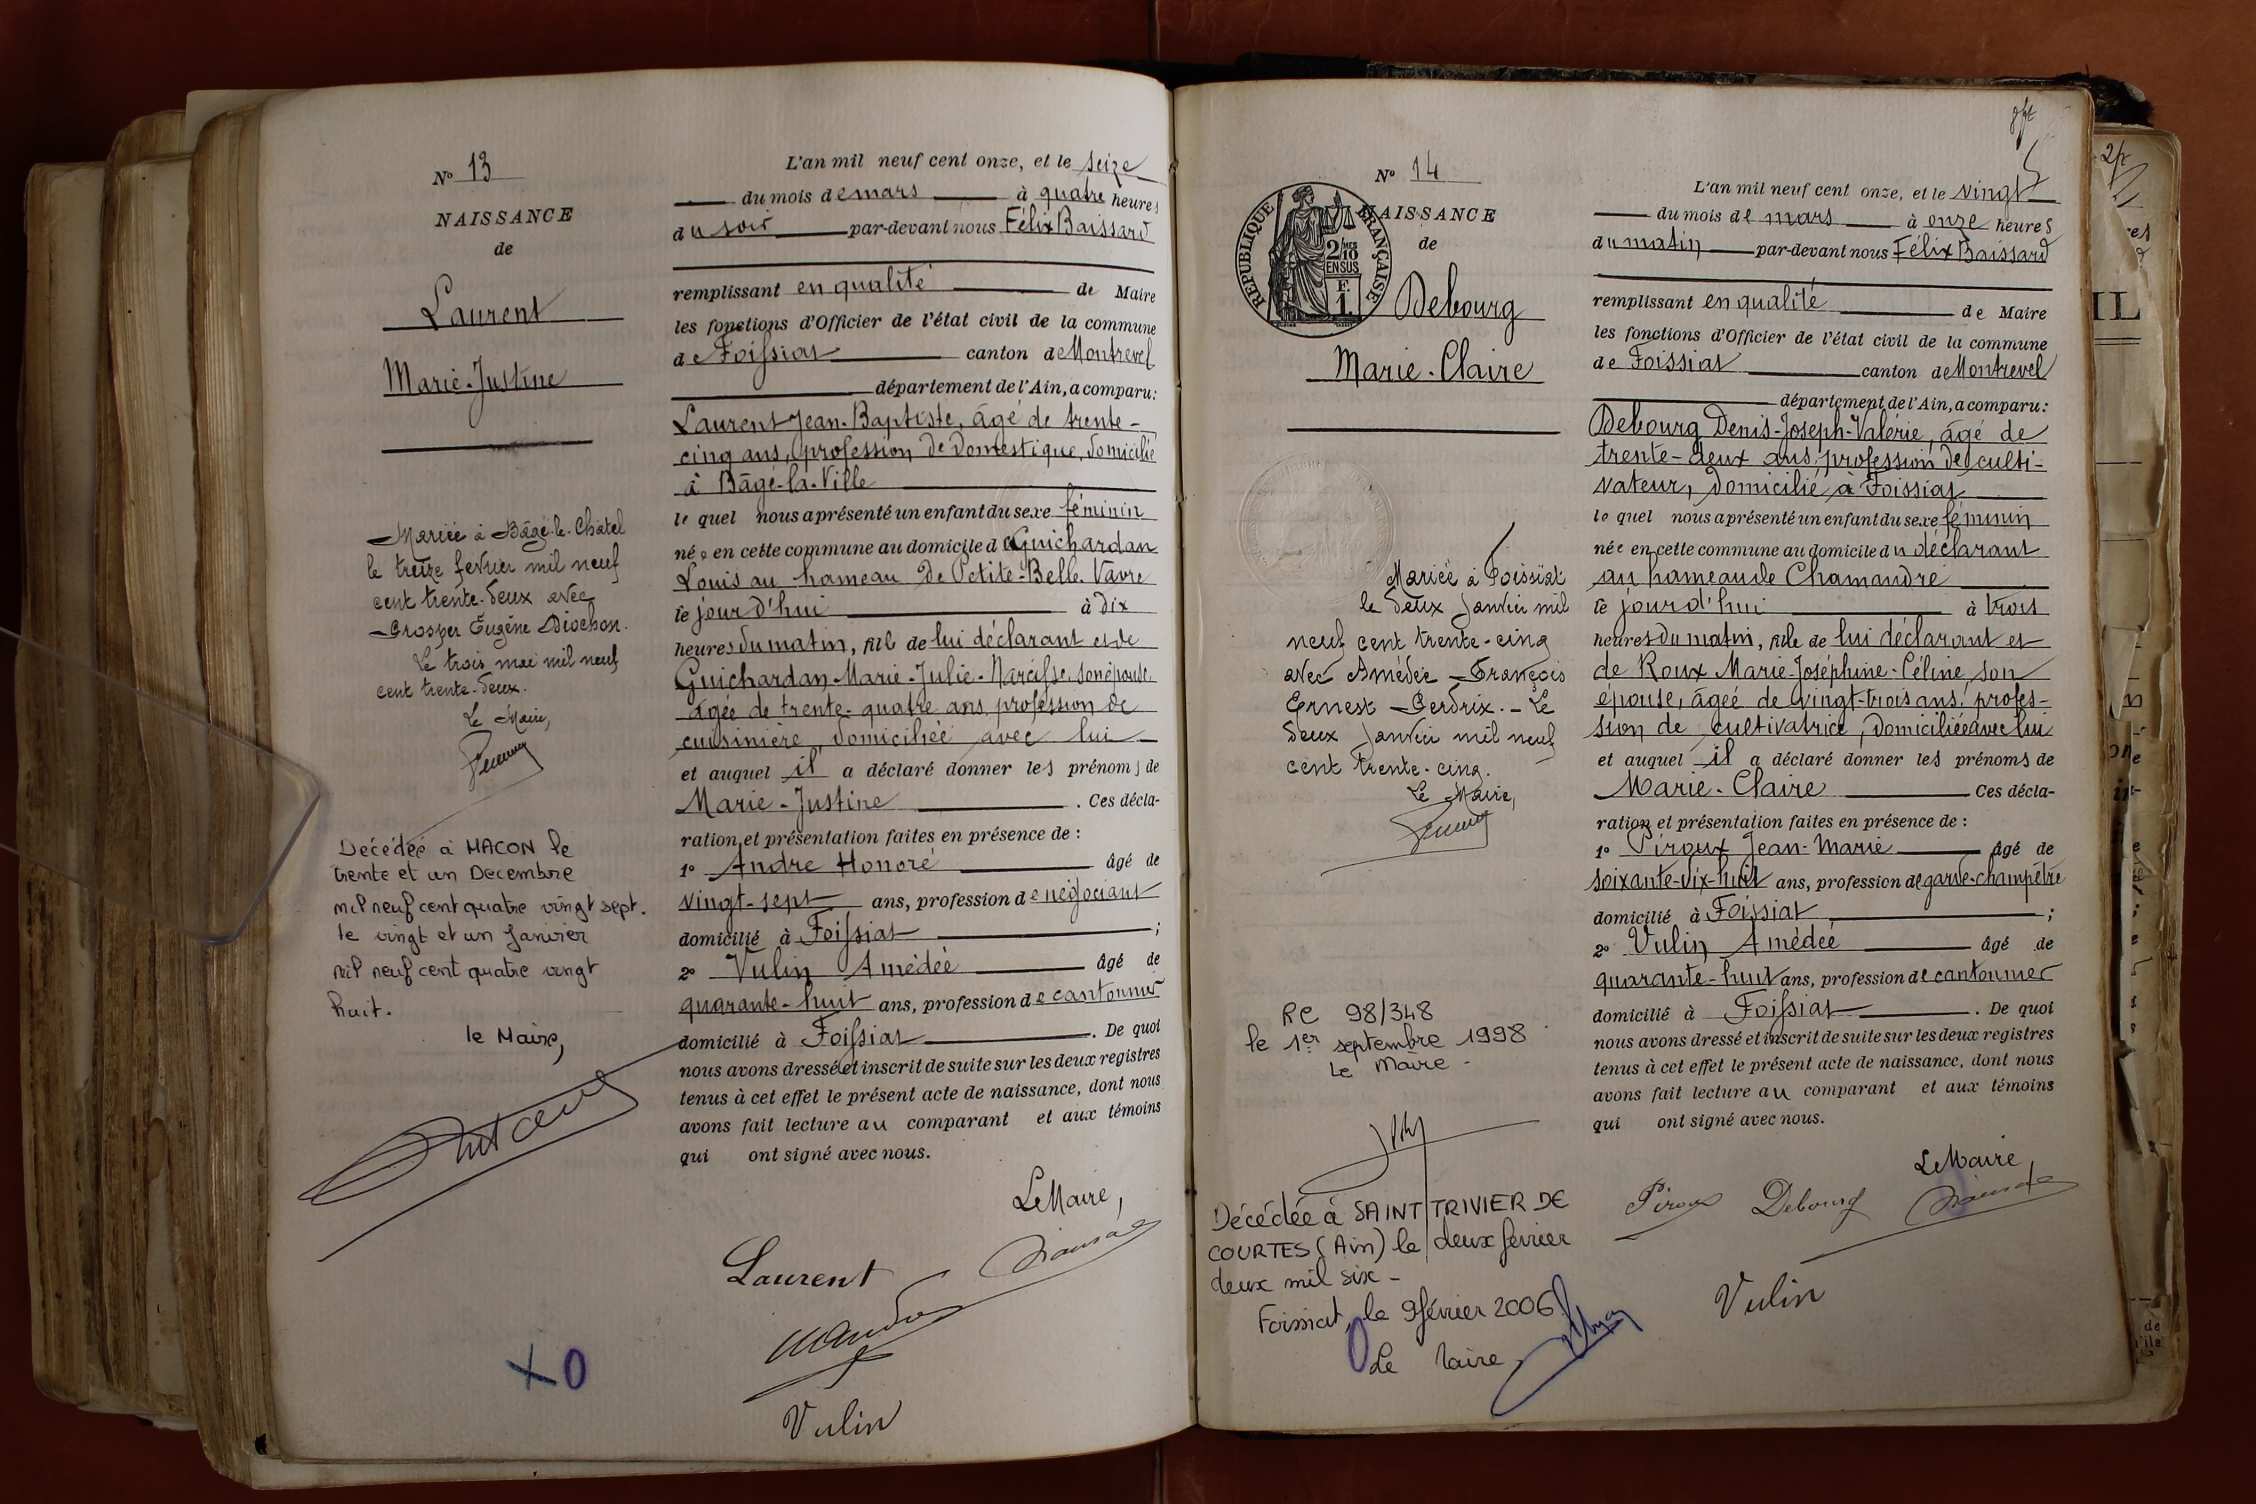 N° 13
NAISSANCE
de
Laurent
Marie-Justine
Mariée à Bâgé-le-Châtel
le treize février mil neuf
cent trente-deux avec
Prosper Eugène Diochon.
Le trois mai mil neuf
cent trente-deux.
Le Maire,
Décédée à MACON le
trente et un Décembre
mil neuf cent quatre vingt sept.
le vingt et un Janvier
mil neuf cent quatre vingt
huit.
le Maire,
X O
L'an mil neuf cent onze, et le seize
du mois de mars à quatre heures
du soir par-devant nous Félix Baissard
remplissant en qualité de Maire
les fonctions d'Officier de l'état civil de la commune
de Foissiat canton de Montrevel
département de l'Ain, a comparu:
Laurent Jean-Baptiste, âgé de trente-
cinq ans, profession de domestique, domicilié
à Bâgé-la-Ville
le quel nous a présenté un enfant du sexe féminin
née en cette commune au domicile de Guichardan
Louis au hameau de Petite-Belle-Vavre
le jour d'hui à dix
heures du matin, fille de lui déclarant et de
Guichardan Marie-Julie-Narcisse son épouse,
âgée de trente-quatre ans, profession de
cuisinière, domiciliée avec lui
et auquel il a déclaré donner les prénoms de
Marie-Justine . Ces décla-
ration et présentation faites en présence de :
1° Andre Honoré âgé de
vingt-sept ans, profession de négociant
domicilié à Foissiat ;
2° Vulin Amédée âgé de
quarante-huit ans, profession de cantonnier
domicilié à Foissiat . De quoi
nous avons dressé et inscrit de suite sur les deux registres
tenus à cet effet le présent acte de naissance, dont nous
avons fait lecture au comparant et aux témoins
qui ont signé avec nous.
Le Maire,
Laurent
Vulin
N° 14
NAISSANCE
de
RÉPUBLIQUE FRANÇAISE
2/10 MES
EN SUS
F.
1.
Debourg
Marie-Claire
Mariée à Foissiat
le deux Janvier mil
neuf cent trente-cinq
avec Amédée François
Ernest Perdrix. - Le
deux Janvier mil neuf
cent trente-cinq.
Le Maire,
RC 98/348
le 1er septembre 1998
Le Maire -
Décédée à SAINT TRIVIER DE
COURTES (Ain) le deux février
deux mil six -
Foissiat, le 9 février 2006
Le Maire
L'an mil neuf cent onze, et le vingt
du mois de mars à onze heures
du matin par-devant nous Félix Baissard
remplissant en qualité de Maire
les fonctions d'Officier de l'état civil de la commune
de Foissiat canton de Montrevel
département de l'Ain, a comparu:
Debourg Denis-Joseph-Valérie, âgé de
trente-deux ans, profession de culti-
vateur, domicilié à Foissiat
le quel nous a présenté un enfant du sexe féminin
née en cette commune au domicile du déclarant
au hameau de Chamandré
le jour d'hui à trois
heures du matin, fille de lui déclarant et
de Roux Marie-Joséphine-Céline, son
épouse, âgée de vingt-trois ans, profes-
sion de cultivatrice, domiciliée avec lui
et auquel il a déclaré donner les prénoms de
Marie-Claire Ces décla-
ration et présentation faites en présence de :
1° Piroux Jean-Marie âgé de
soixante-dix-huit ans, profession de garde-champêtre
domicilié à Foissiat ;
2° Vulin Amédée âgé de
quarante-huit ans, profession de cantonnier
domicilié à Foissiat . De quoi
nous avons dressé et inscrit de suite sur les deux registres
tenus à cet effet le présent acte de naissance, dont nous
avons fait lecture au comparant et aux témoins
qui ont signé avec nous.
Le Maire,
Piroux Debourg
Vulin